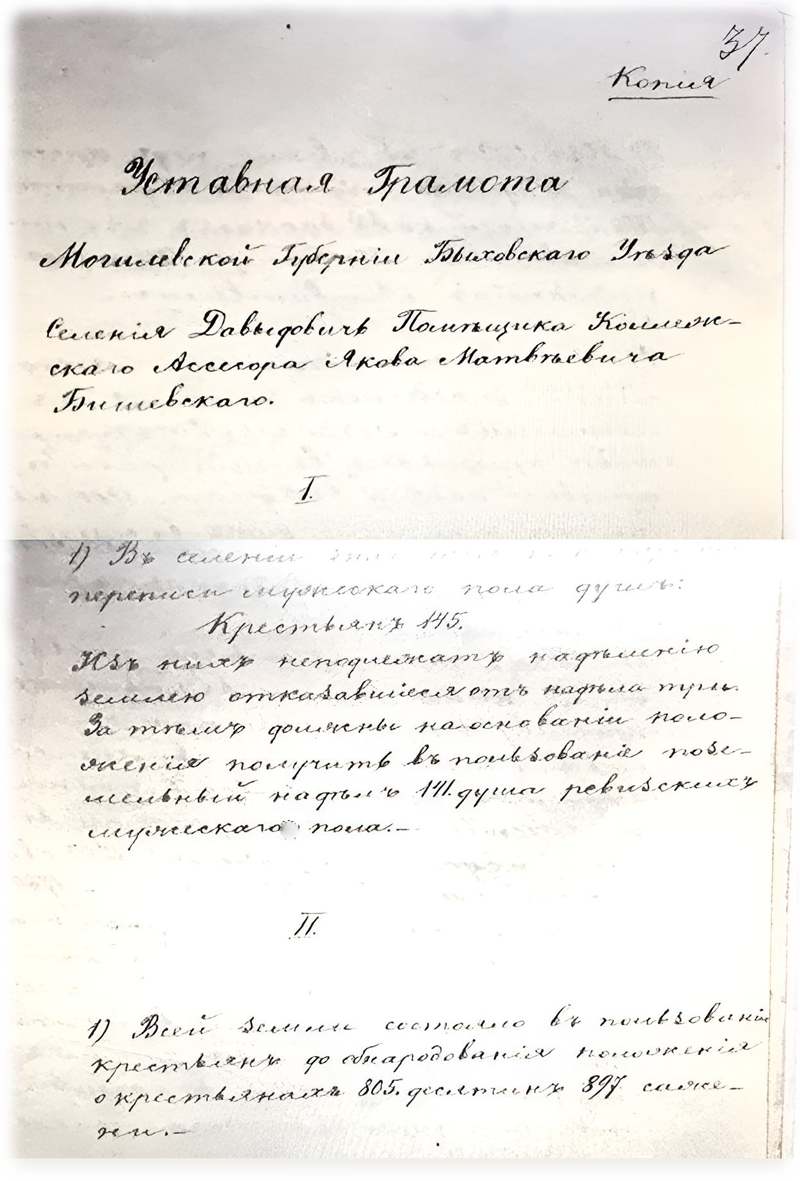 37.
Копія
Уставная Грамота
Могилевской Губерніи Быховскаго Уѣзда
Селенія Давыдовичъ Помѣщика Коллеж-
скаго Ассесора Якова Матвѣевича
Бишевскаго.
I.
1) Въ селеніи
переписи мужескаго пола душъ:
Крестьянъ 145.
Изъ нихъ неподлежатъ надѣленію
землею отказавшіеся отъ надѣла три.
За тѣмъ должны на основаніи поло-
женія получить въ пользованіе позе-
мельный надѣлъ 141. душа ревизскихъ
мужескаго пола.—
II.
1) Всей земли состояло въ пользованіи
крестьянъ до обнародованія положенія
о крестьянахъ 805. десятинъ 897 саже-
ни.—